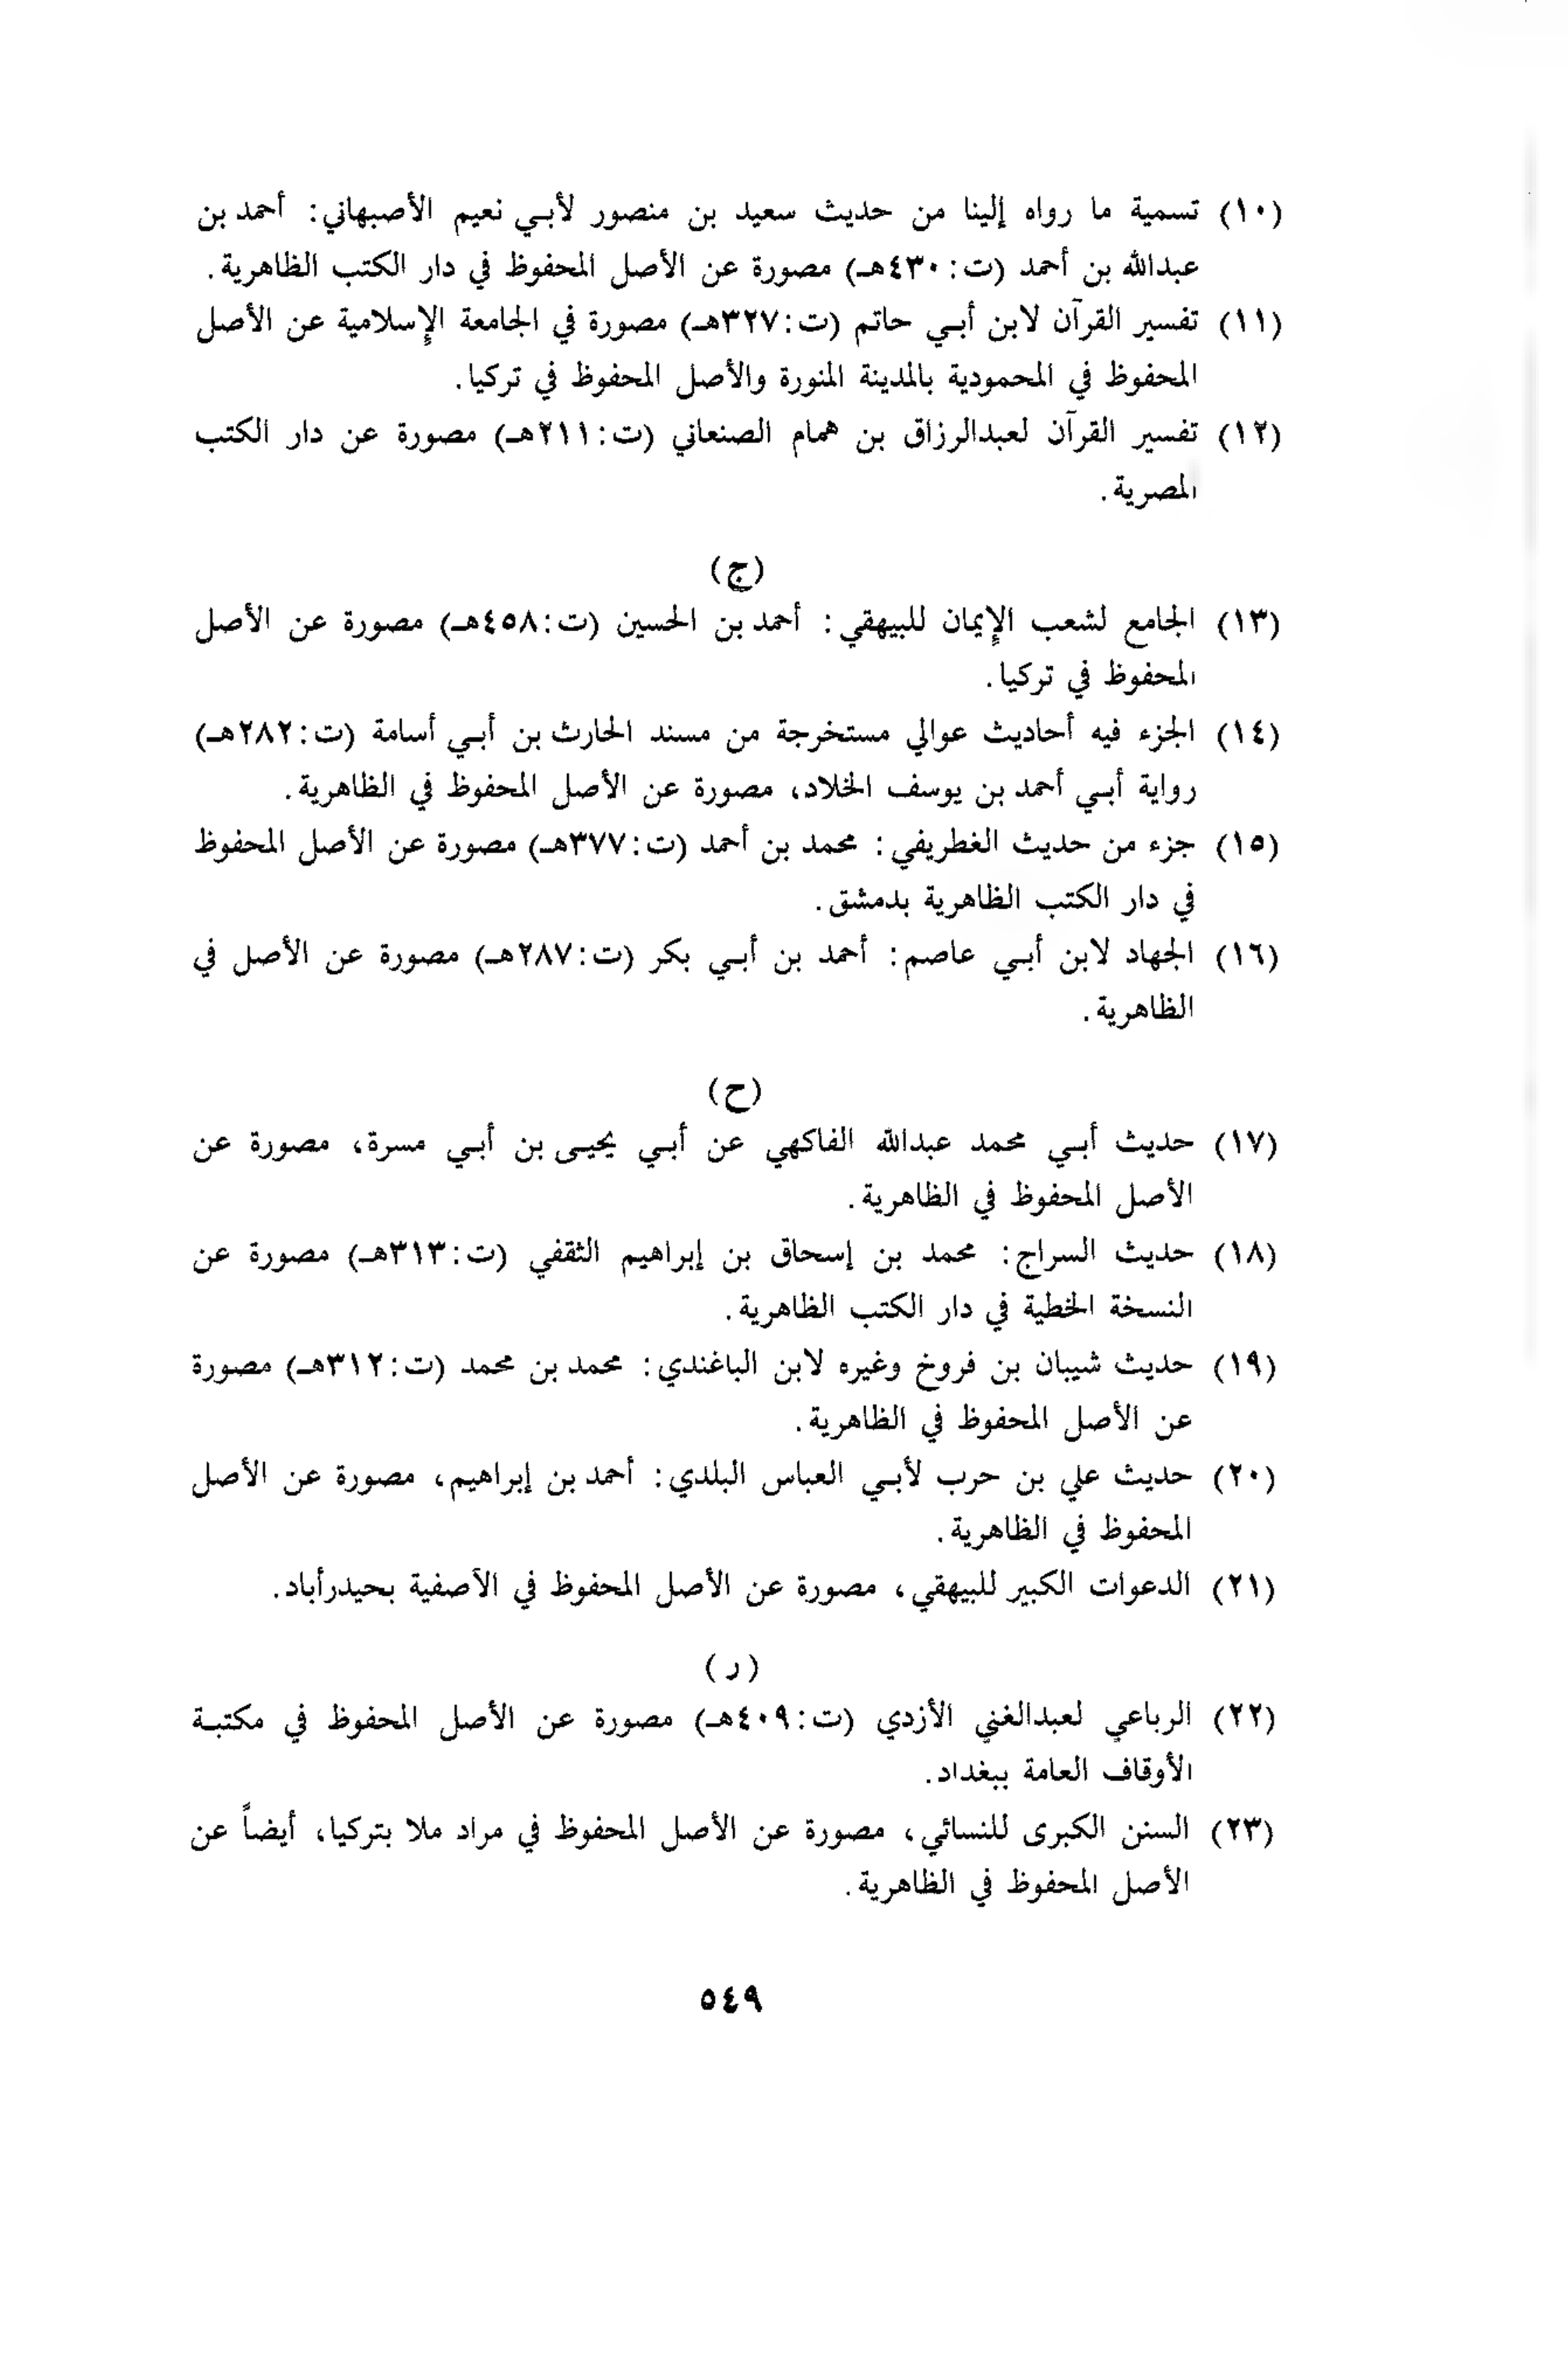 (١٠) تسمية ما رواه إلينا من حديث سعيد بن منصور لأبي نعيم الأصبهاني: أحمد بن
عبدالله بن أحمد (ت:٤٣٠هـ) مصورة عن الأصل المحفوظ في دار الكتب الظاهرية.
(١١) تفسير القرآن لابن أبي حاتم (ت:٣٢٧هـ) مصورة في الجامعة الإسلامية عن الأصل
المحفوظ في المحمودية بالمدينة المنورة والأصل المحفوظ في تركيا.
(١٢) تفسير القرآن لعبدالرزاق بن همام الصنعاني (ت:٢١١هـ) مصورة عن دار الكتب
المصرية.
(ج)
(١٣) الجامع لشعب الإيمان للبيهقي: أحمد بن الحسين (ت:٤٥٨هـ) مصورة عن الأصل
المحفوظ في تركيا.
(١٤) الجزء فيه أحاديث عوالي مستخرجة من مسند الحارث بن أبي أسامة (ت:٢٨٢هـ)
رواية أبي أحمد بن يوسف الخلاد، مصورة عن الأصل المحفوظ في الظاهرية.
(١٥) جزء من حديث الغطريفي: محمد بن أحمد (ت:٣٧٧هـ) مصورة عن الأصل المحفوظ
في دار الكتب الظاهرية بدمشق.
(١٦) الجهاد لابن أبي عاصم: أحمد بن أبي بكر (ت:٢٨٧هـ) مصورة عن الأصل في
الظاهرية.
(ح)
(١٧) حديث أبي محمد عبدالله الفاكهي عن أبي يحيى بن أبي مسرة، مصورة عن
الأصل المحفوظ في الظاهرية.
(١٨) حديث السراج: محمد بن إسحاق بن إبراهيم الثقفي (ت:٣١٣هـ) مصورة عن
النسخة الخطية في دار الكتب الظاهرية.
(١٩) حديث شيبان بن فروخ وغيره لابن الباغندي: محمد بن محمد (ت:٣١٢هـ) مصورة
عن الأصل المحفوظ في الظاهرية.
(٢٠) حديث علي بن حرب لأبي العباس البلدي: أحمد بن إبراهيم، مصورة عن الأصل
المحفوظ في الظاهرية.
(٢١) الدعوات الكبير للبيهقي، مصورة عن الأصل المحفوظ في الآصفية بحيدرأباد.
(ر)
(٢٢) الرباعي لعبدالغني الأزدي (ت:٤٠٩هـ) مصورة عن الأصل المحفوظ في مكتبة
الأوقاف العامة ببغداد.
(٢٣) السنن الكبرى للنسائي، مصورة عن الأصل المحفوظ في مراد ملا بتركيا، أيضاً عن
الأصل المحفوظ في الظاهرية.
٥٤٩